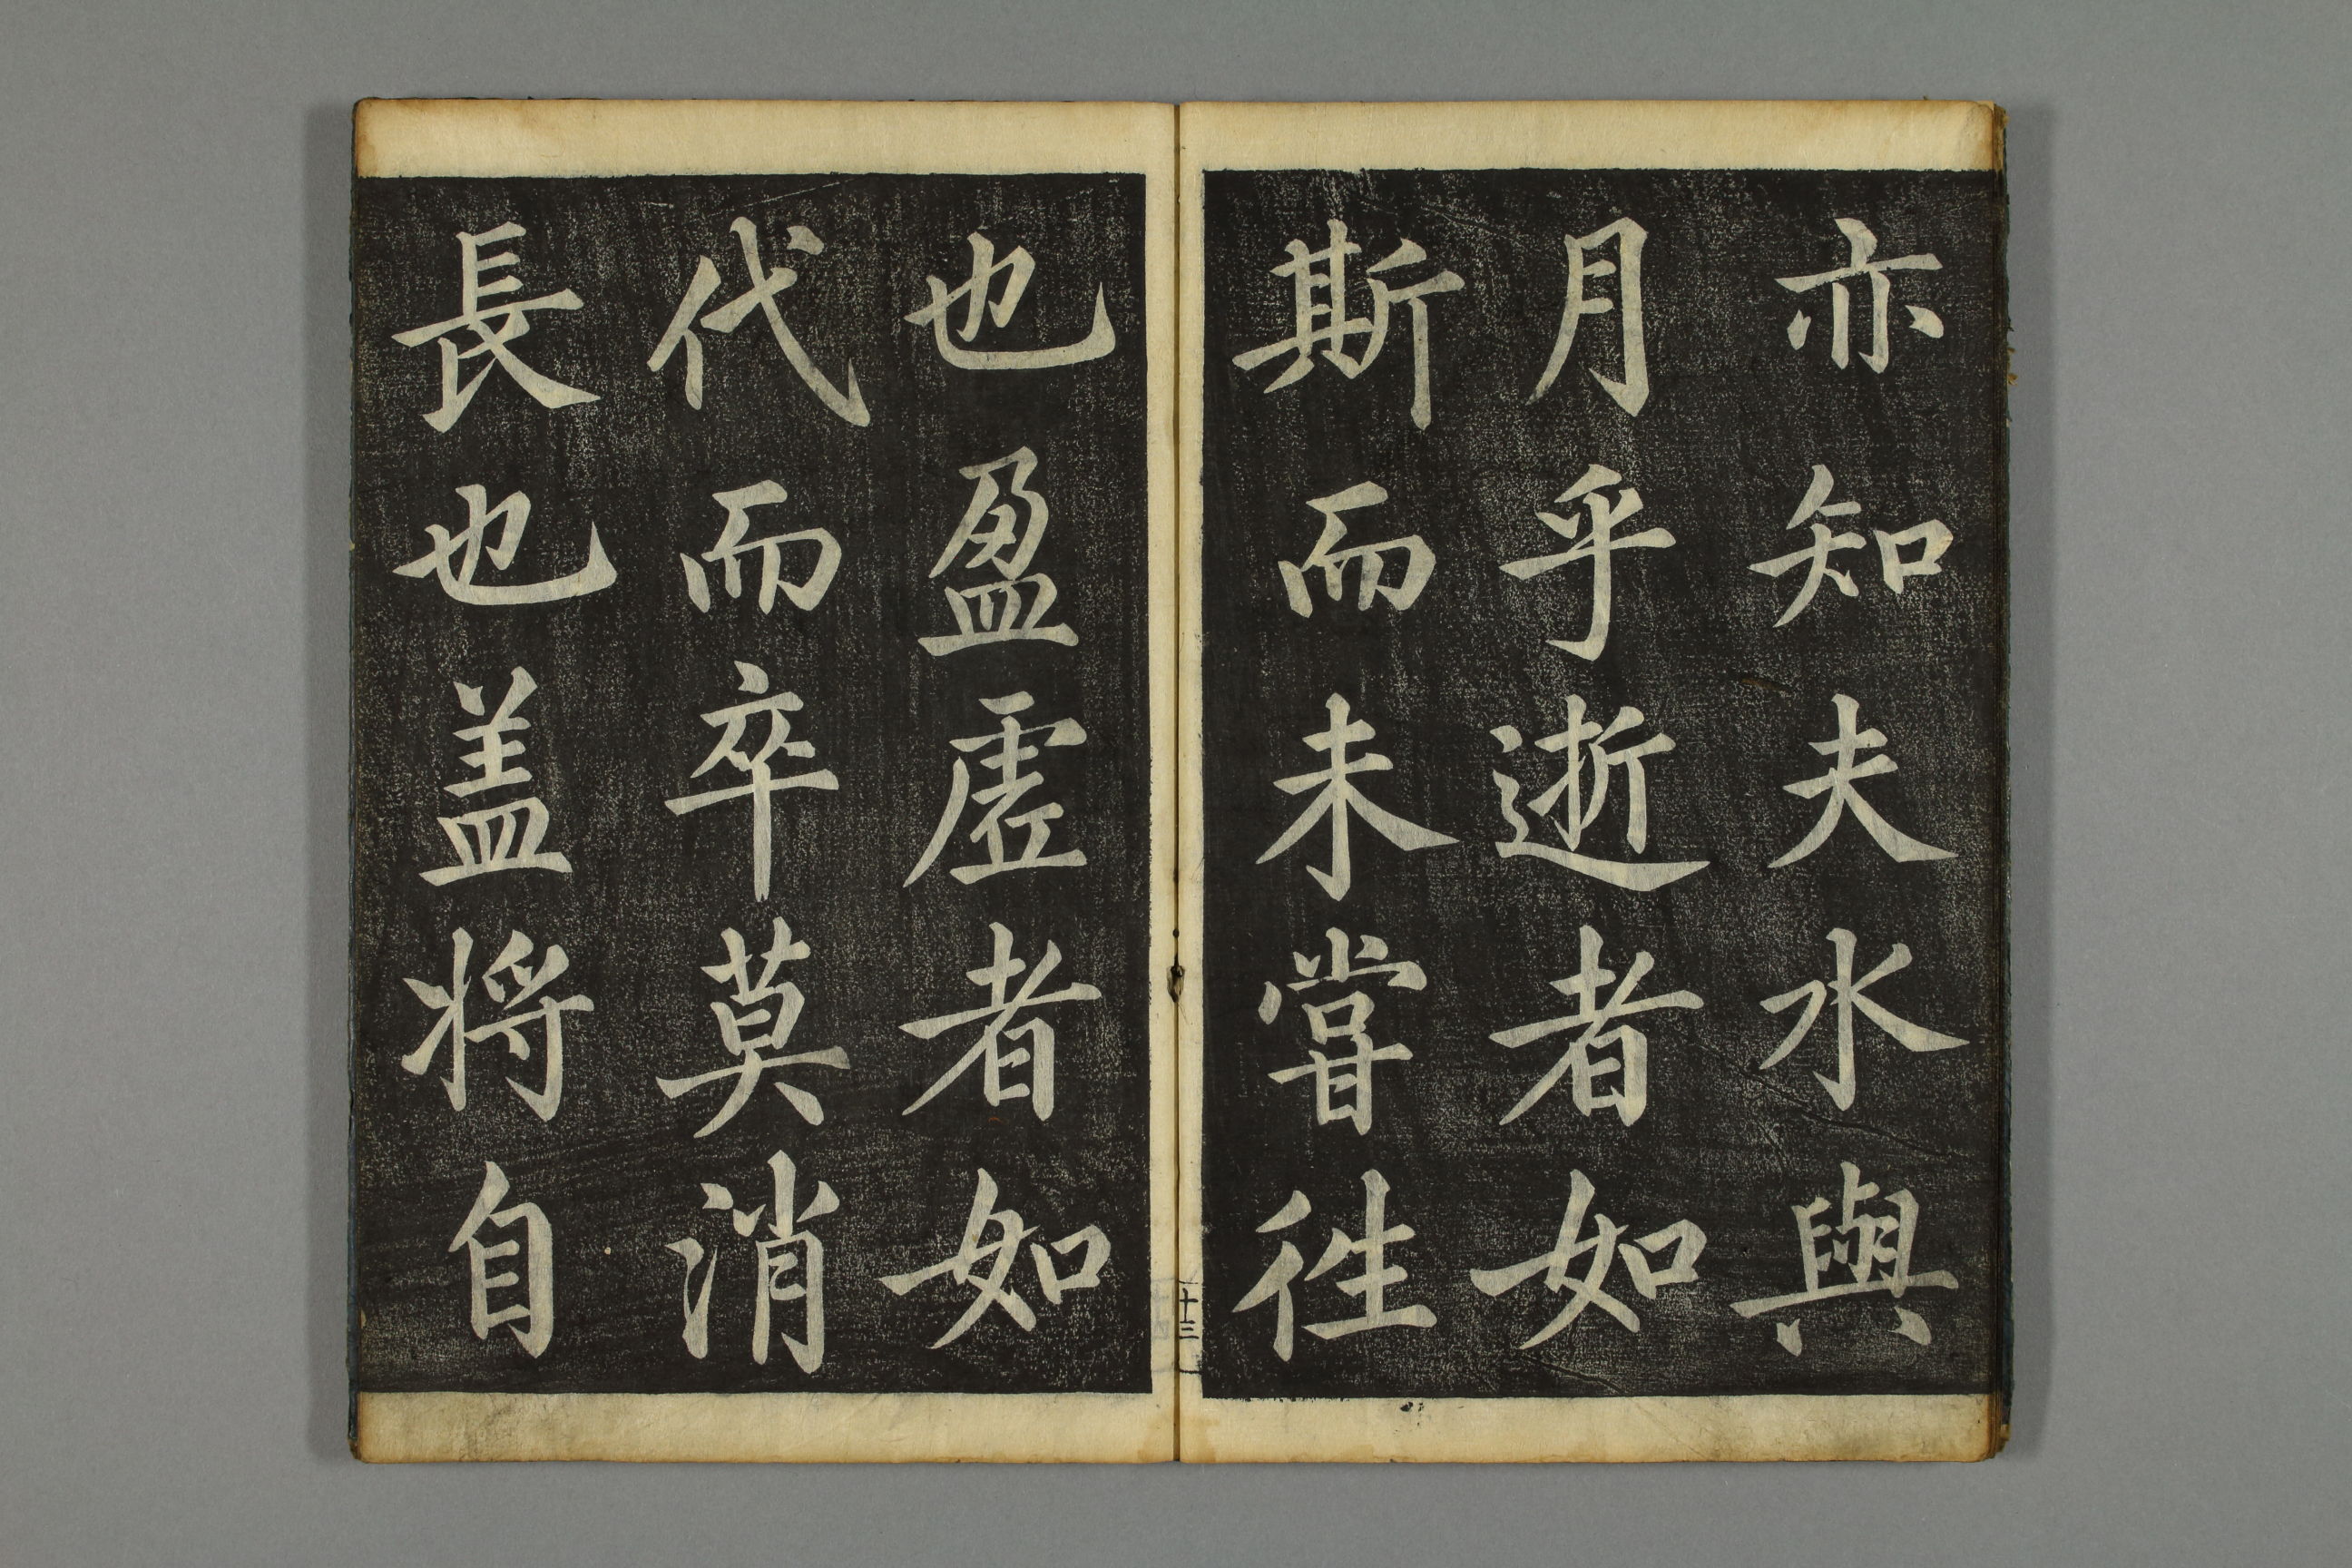 亦知夫水與
月乎逝者如
斯而未甞徃
也盈虛者如
代而卒莫消
長也盖将自
十三